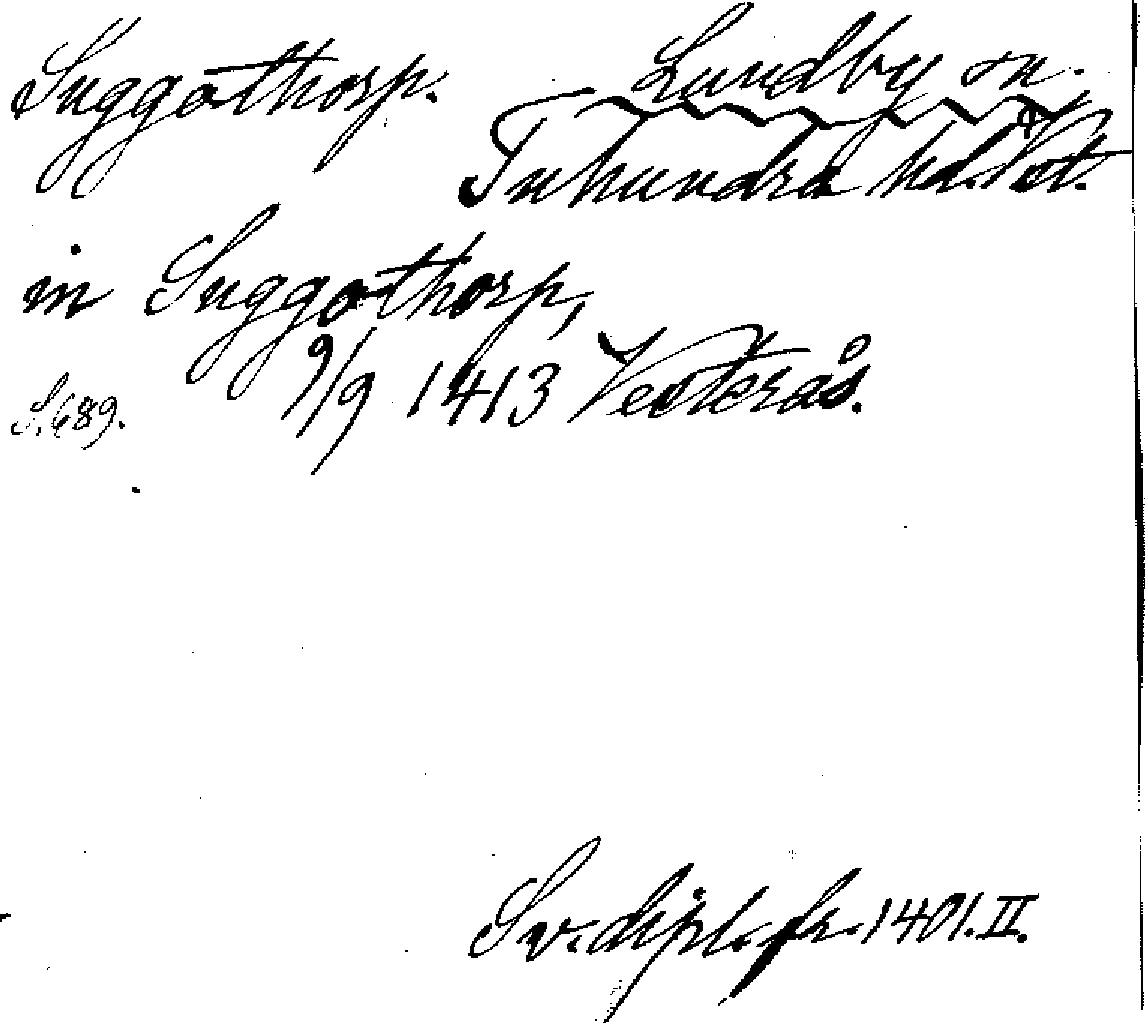 Suggothorp. Lundby sn.
Tuhundra hd. Vst.
in Suggothorp,
9/9 1413 Vesterås.
S. 689.
Sv. dipl. fr. 1401. II.